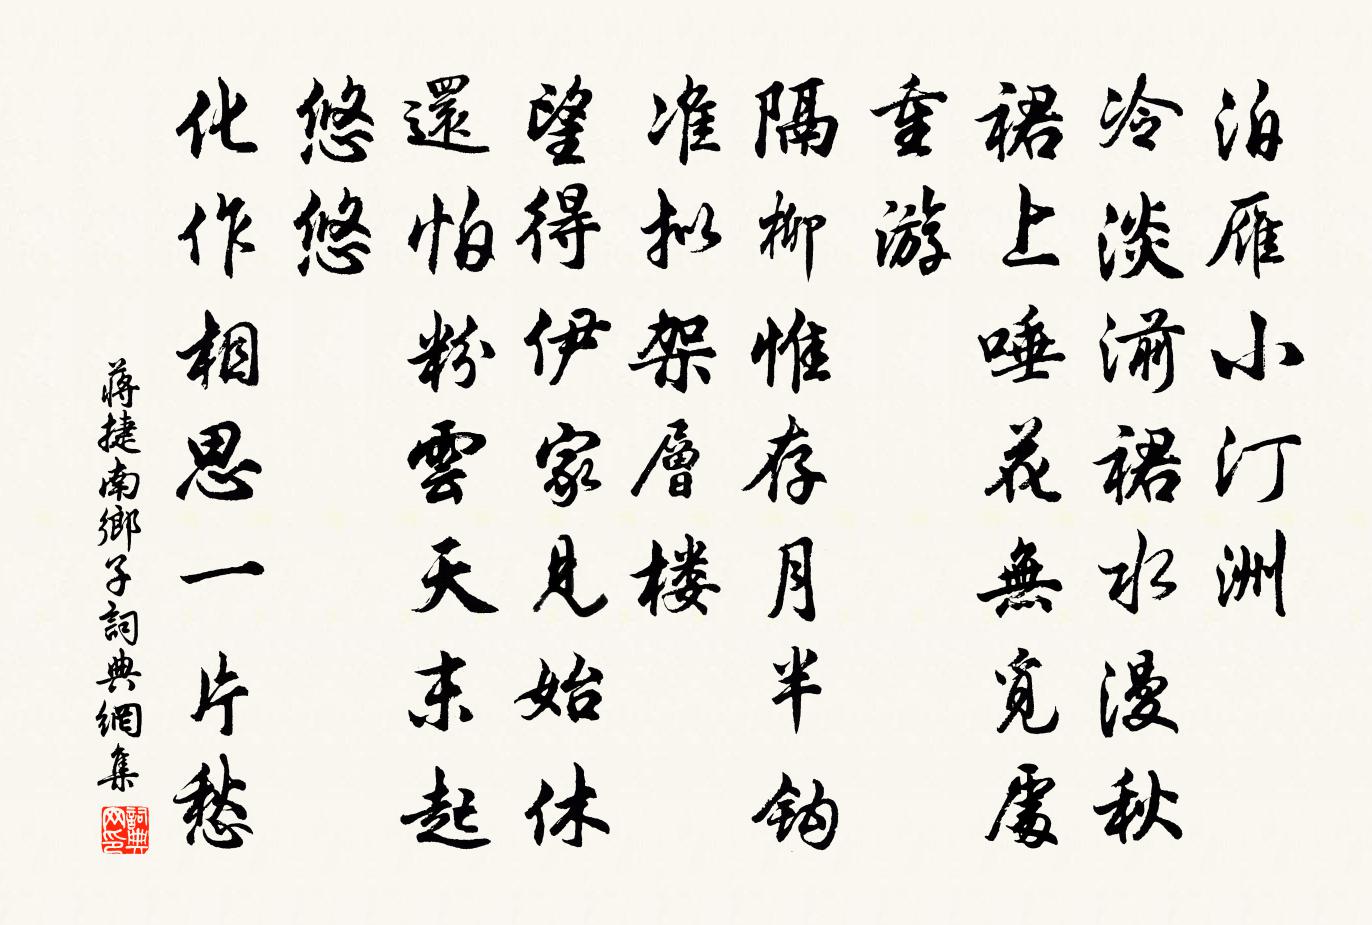 泊雁小汀洲
冷淡湔裙水漫秋
裙上唾花無覓處
重游
隔柳惟存月半鈎
准拟架層楼
望得伊家見始休
還怕粉雲天末起
悠悠
化作相思一片愁
蒋捷南鄉子詞典網集
詞典网印